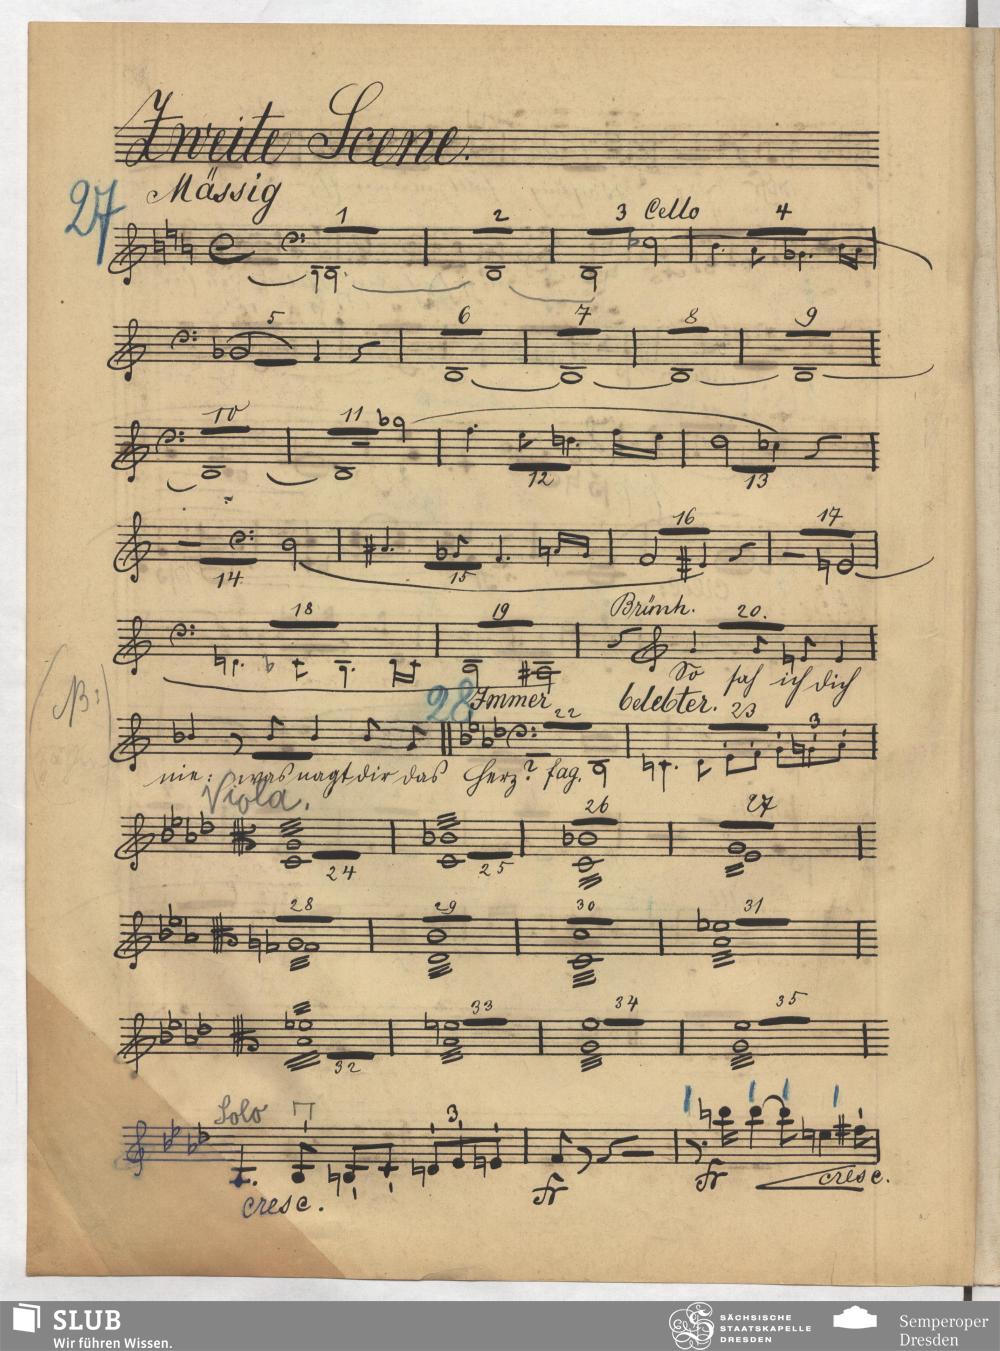 Zweite Scene.
Mässig
27
1 2 3 Cello 4
5 6 7 8 9
10 11
12 13
16 17
14 15
18 19 Brünh. 20.
So sah ich dich
28 Immer belebter.
22 23 3
nie: was nagt dir das Herz? fag.
Viola.
26 27
24 25
28 29 30 31
33 34 35
32
Solo 3
cresc. fr fr cresc.
SLUB
Wir führen Wissen.
SÄCHSISCHE
STAATSKAPELLE
DRESDEN
Semperoper
Dresden